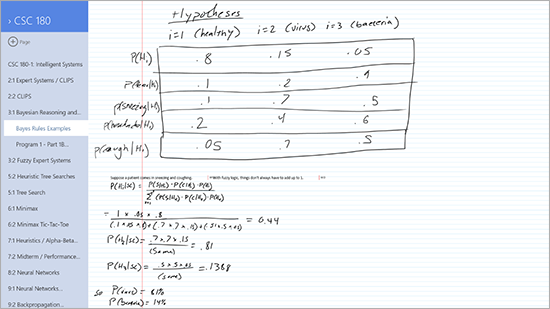 › CSC 180
Page
CSC 180-1: Intelligent Systems
2.1 Expert Systems / CLIPS
2.2 CLIPS
3.1 Bayesian Reasoning and...
Bayes Rules Examples
Program 1 - Part 1B...
3.2 Fuzzy Expert Systems
5.2 Heuristic Tree Searches
5.1 Tree Search
6.1 Minimax
6.2 Minimax Tic-Tac-Toe
7.1 Heuristics / Alpha-Beta...
7.2 Midterm / Performance...
8.2 Neural Networks
9.1 Neural Networks...
9.2 Backpropagation...
Hypotheses
i=1 (healthy) i=2 (virus) i=3 (bacteria)
P(Hi) .8 .15 .05
.1 .2
P(sneezing/Hi) .1 .7 .5
.2 .4 .6
P(cough/Hi) .05 .7 .5
Suppose a patient comes in sneezing and coughing. With fuzzy logic, things don't always have to add up to 1.
= .1 × .05 × .8
(.1×.05×.8)+(.7×.7×.15)+(.5×.5×.05)
.7×.7×.15
(same) = .81
.5×.5×.05
(same) = .1388
so P(virus) = 81%
P(bacteria) = 14%